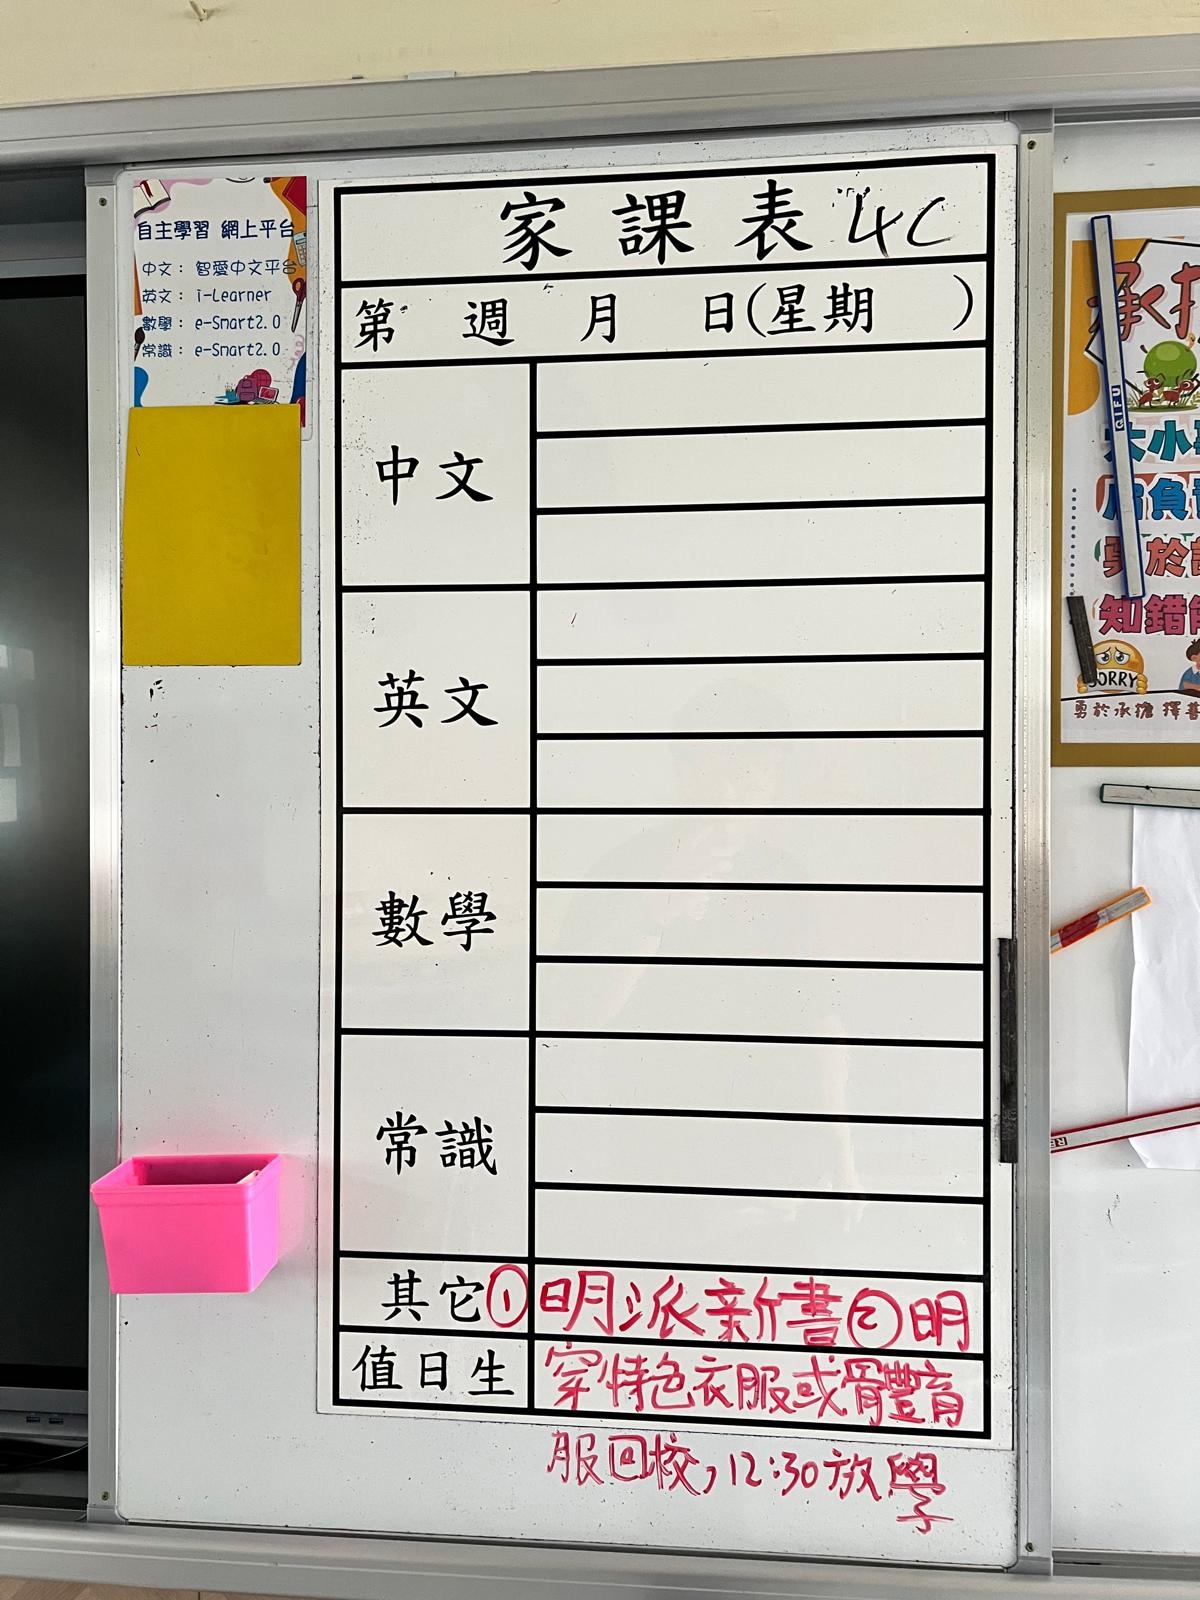 家課表 4C
第 週 月 日(星期 )
中文
英文
數學
常識
其它 ①明派新書②明
值日生 穿特色衣服或體育
服回校,12:30放學
自主學習 網上平台
中文： 智愛中文平台
英文： i-Learner
數學： e-Smart2.0
常識： e-Smart2.0
QIFU
知錯
SORRY
勇於承擔 擇善